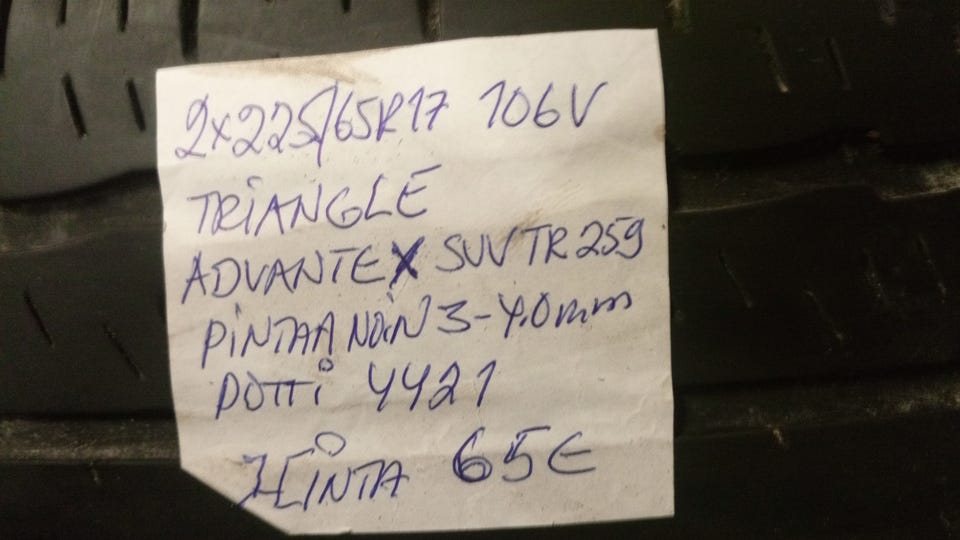 2x225/65R17 106V
TRiANGLE
ADVANTEX SUV TR259
PiNTAA NOiN 3-4.0mm
DOTTi 4421
HiNTA 65€